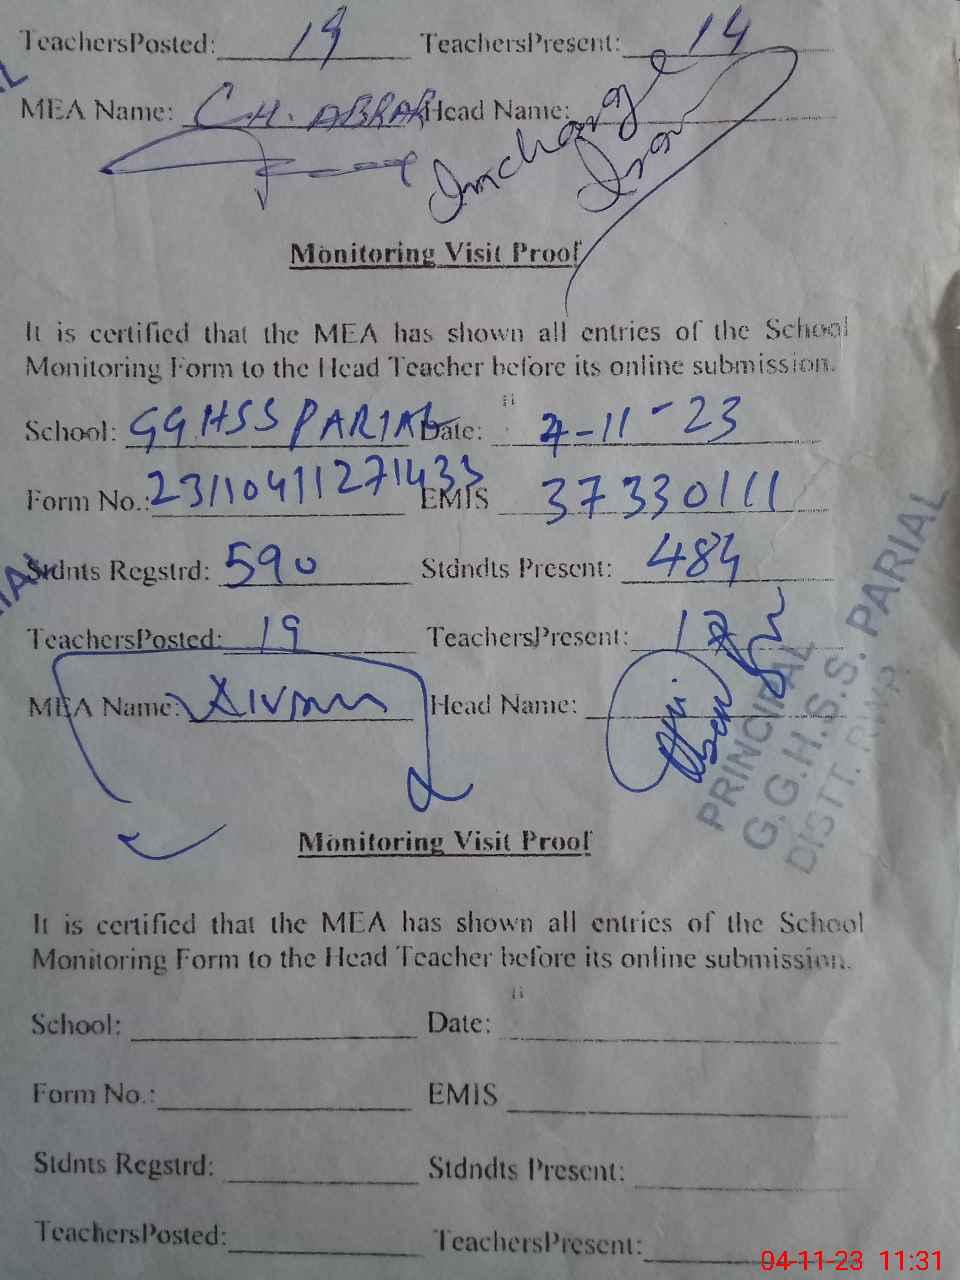 TeachersPosted: 19 TeachersPresent: 14
MEA Name: CH. ABRAR Head Name:
Incharge
Monitoring Visit Proof
It is certified that the MEA has shown all entries of the School
Monitoring Form to the Head Teacher before its online submission.
School: GGHSS PARIAL Date: 4-11-23
Form No.: 231104111271433 EMIS 37330111
Stdnts Regstrd: 590 Stdndts Present: 484
TeachersPosted: 19 TeachersPresent: 17
MEA Name: Head Name:
PRINCIPAL
G.G.H.S.S. PARIAL
DISTT. RWP.
Monitoring Visit Proof
It is certified that the MEA has shown all entries of the School
Monitoring Form to the Head Teacher before its online submission.
School: Date:
Form No.: EMIS
Stdnts Regstrd: Stdndts Present:
TeachersPosted: TeachersPresent:
04-11-23 11:31